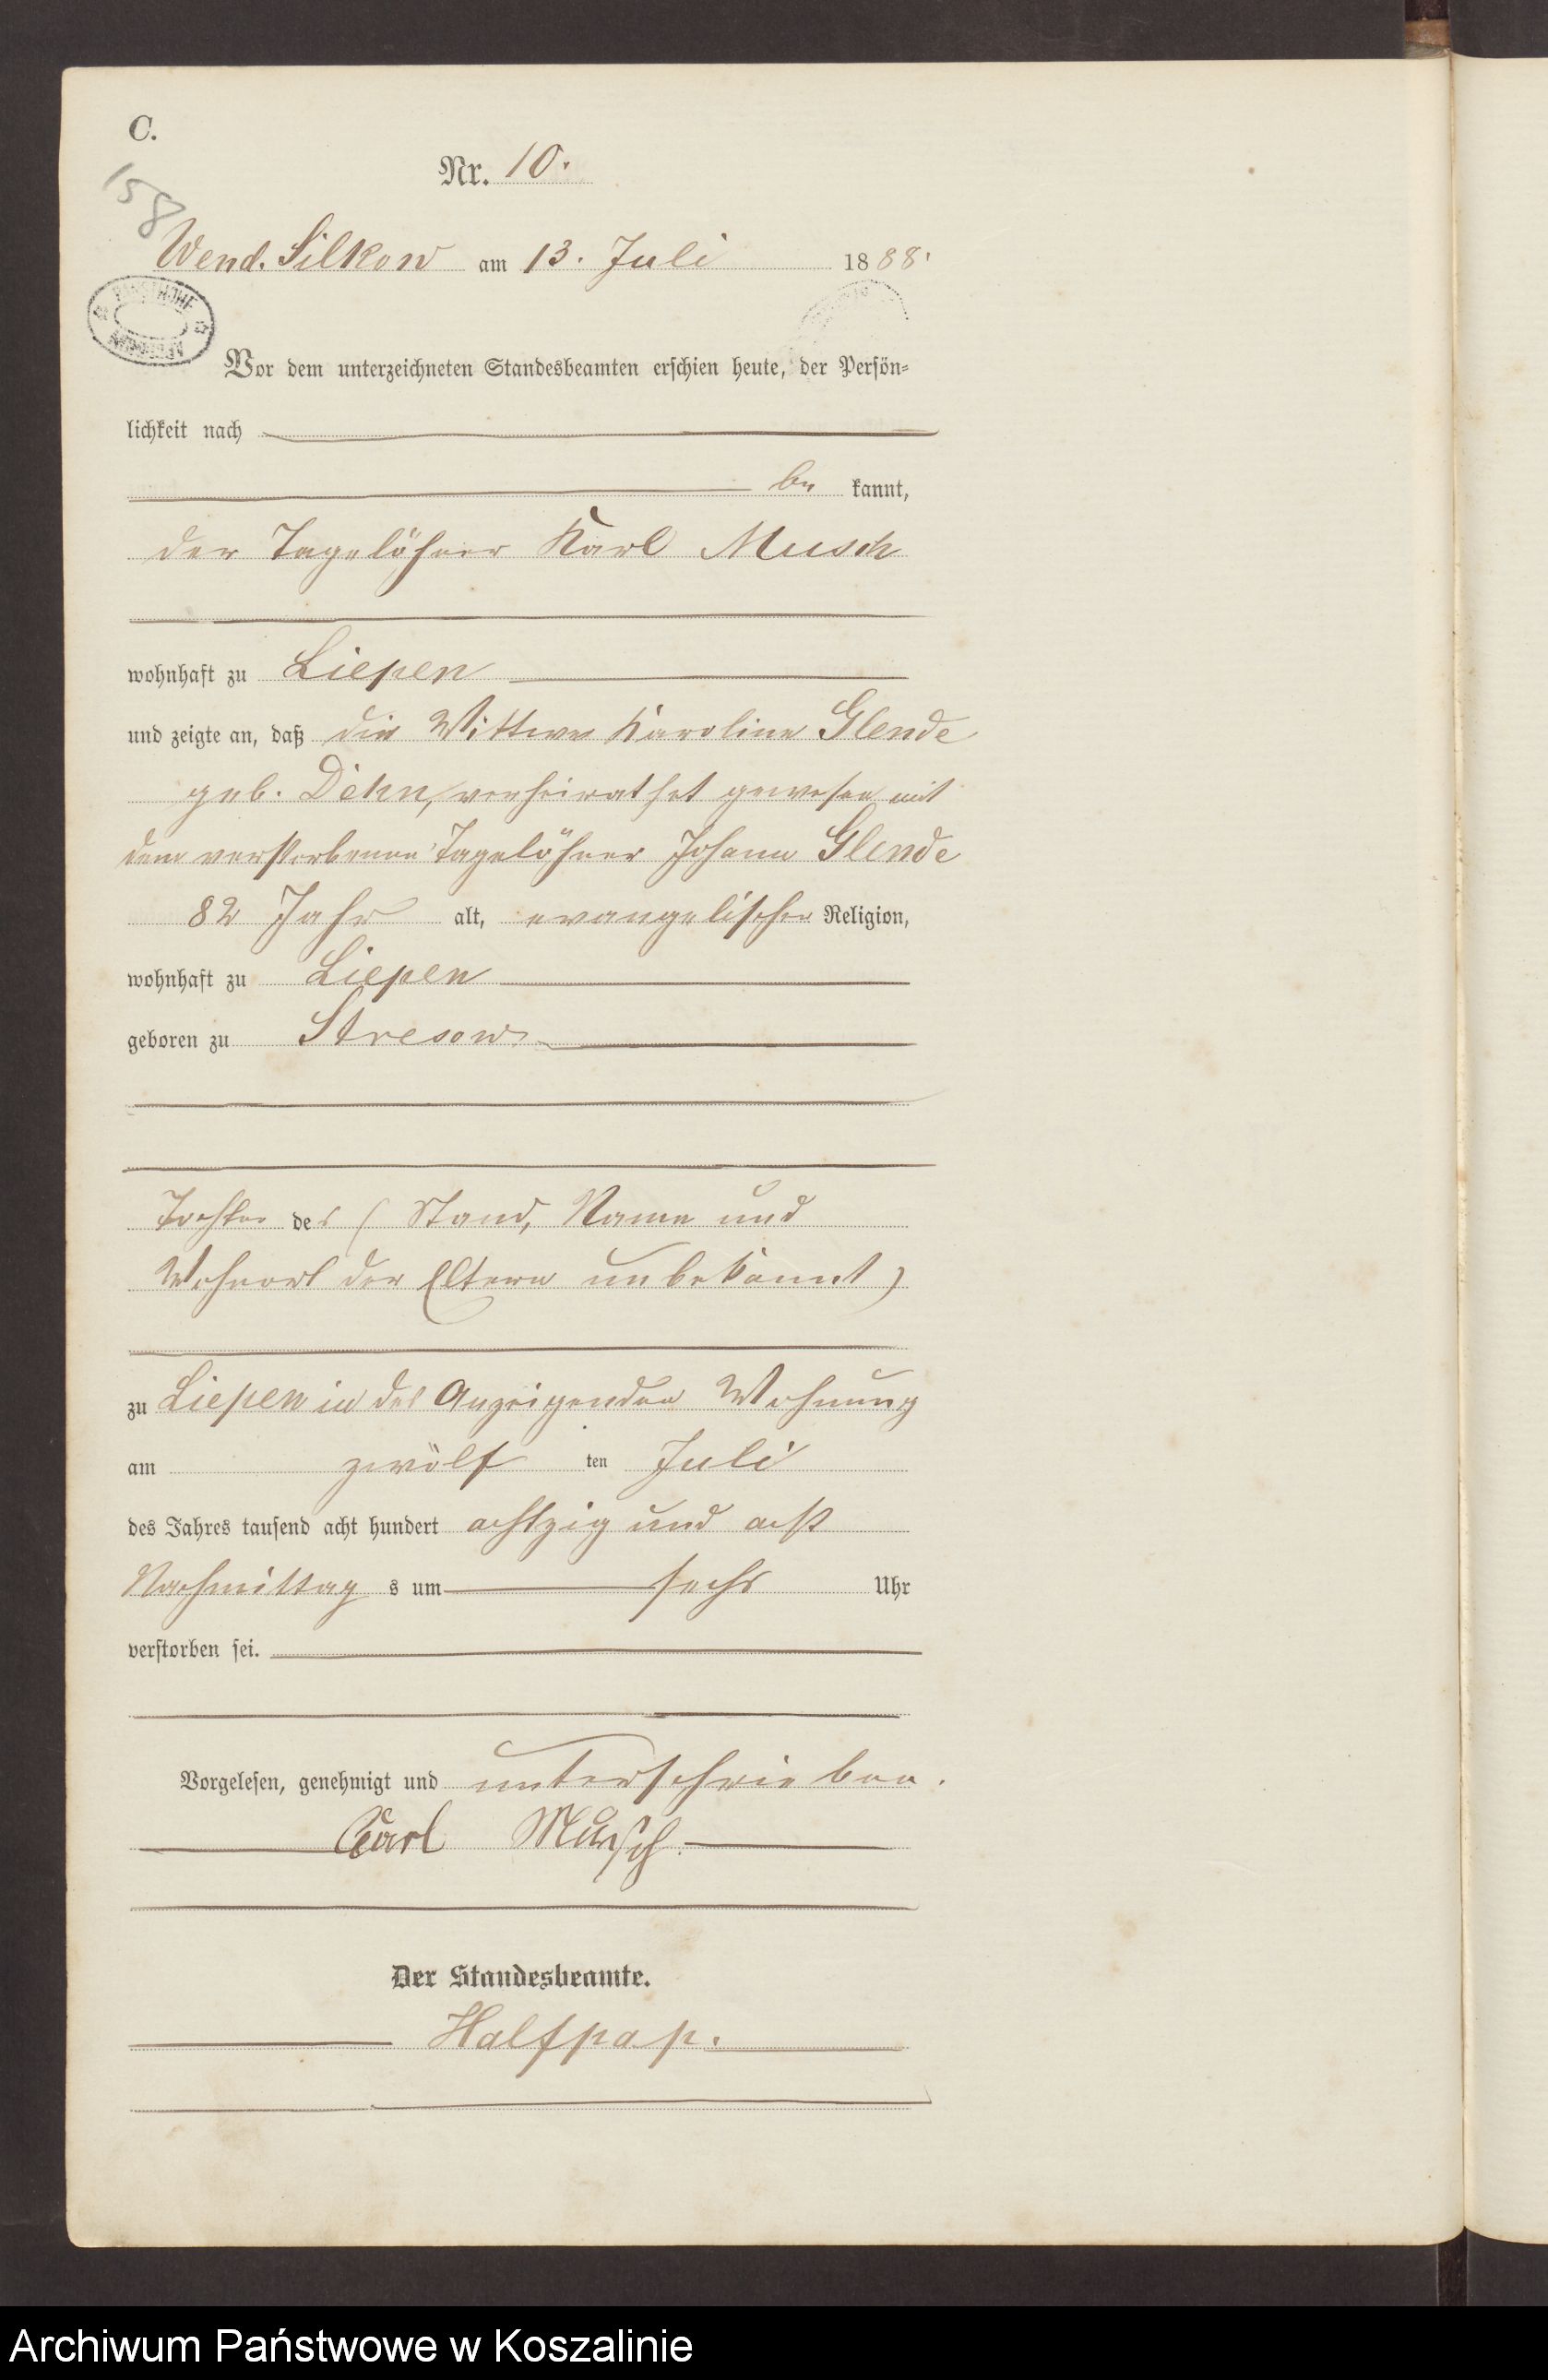 C.
Nr. 10.
158
Wend. Silkow am 13. Juli 1888.
Vor dem unterzeichneten Standesbeamten erschien heute, der Persön-
lichkeit nach
be kannt,
der Tagelöhner Karl Musch
wohnhaft zu Liepen
und zeigte an, daß die Wittwe Karoline Glende
geb. Dehn, verheirathet gewesen mit
dem verstorbenen Tagelöhner Johann Glende
82 Jahr alt, evangelischer Religion,
wohnhaft zu Liepen
geboren zu Stresow
Tochter des (Stand, Name und
Wohnort der Eltern unbekannt)
zu Liepen in des Anzeigenden Wohnung
am zwölf ten Juli
des Jahres tausend acht hundert achtzig und acht
Nachmittag s um sechs Uhr
verstorben sei.
Vorgelesen, genehmigt und unterschrieben.
Carl Musch
Der Standesbeamte.
Halfpap.
Archiwum Państwowe w Koszalinie